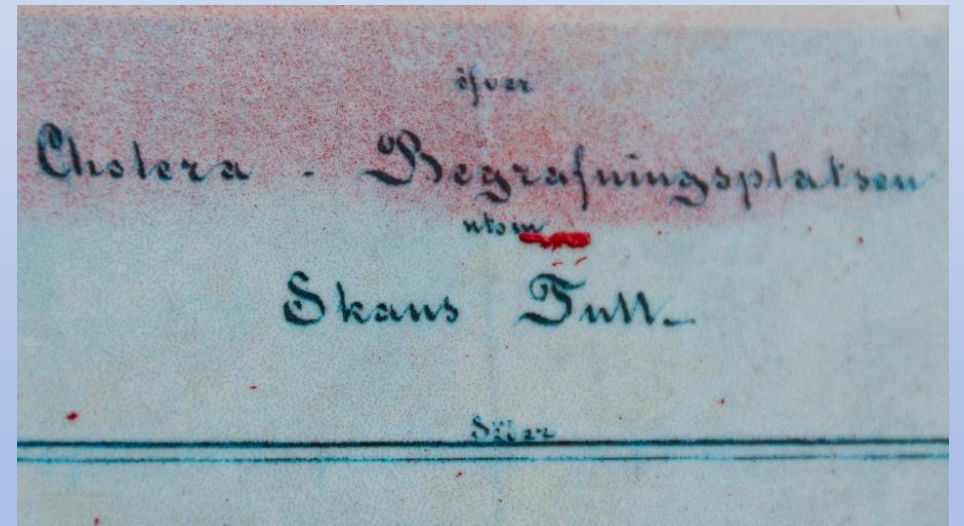 öfver
Cholera - Begrafningsplatsen
utom
Skans Tull